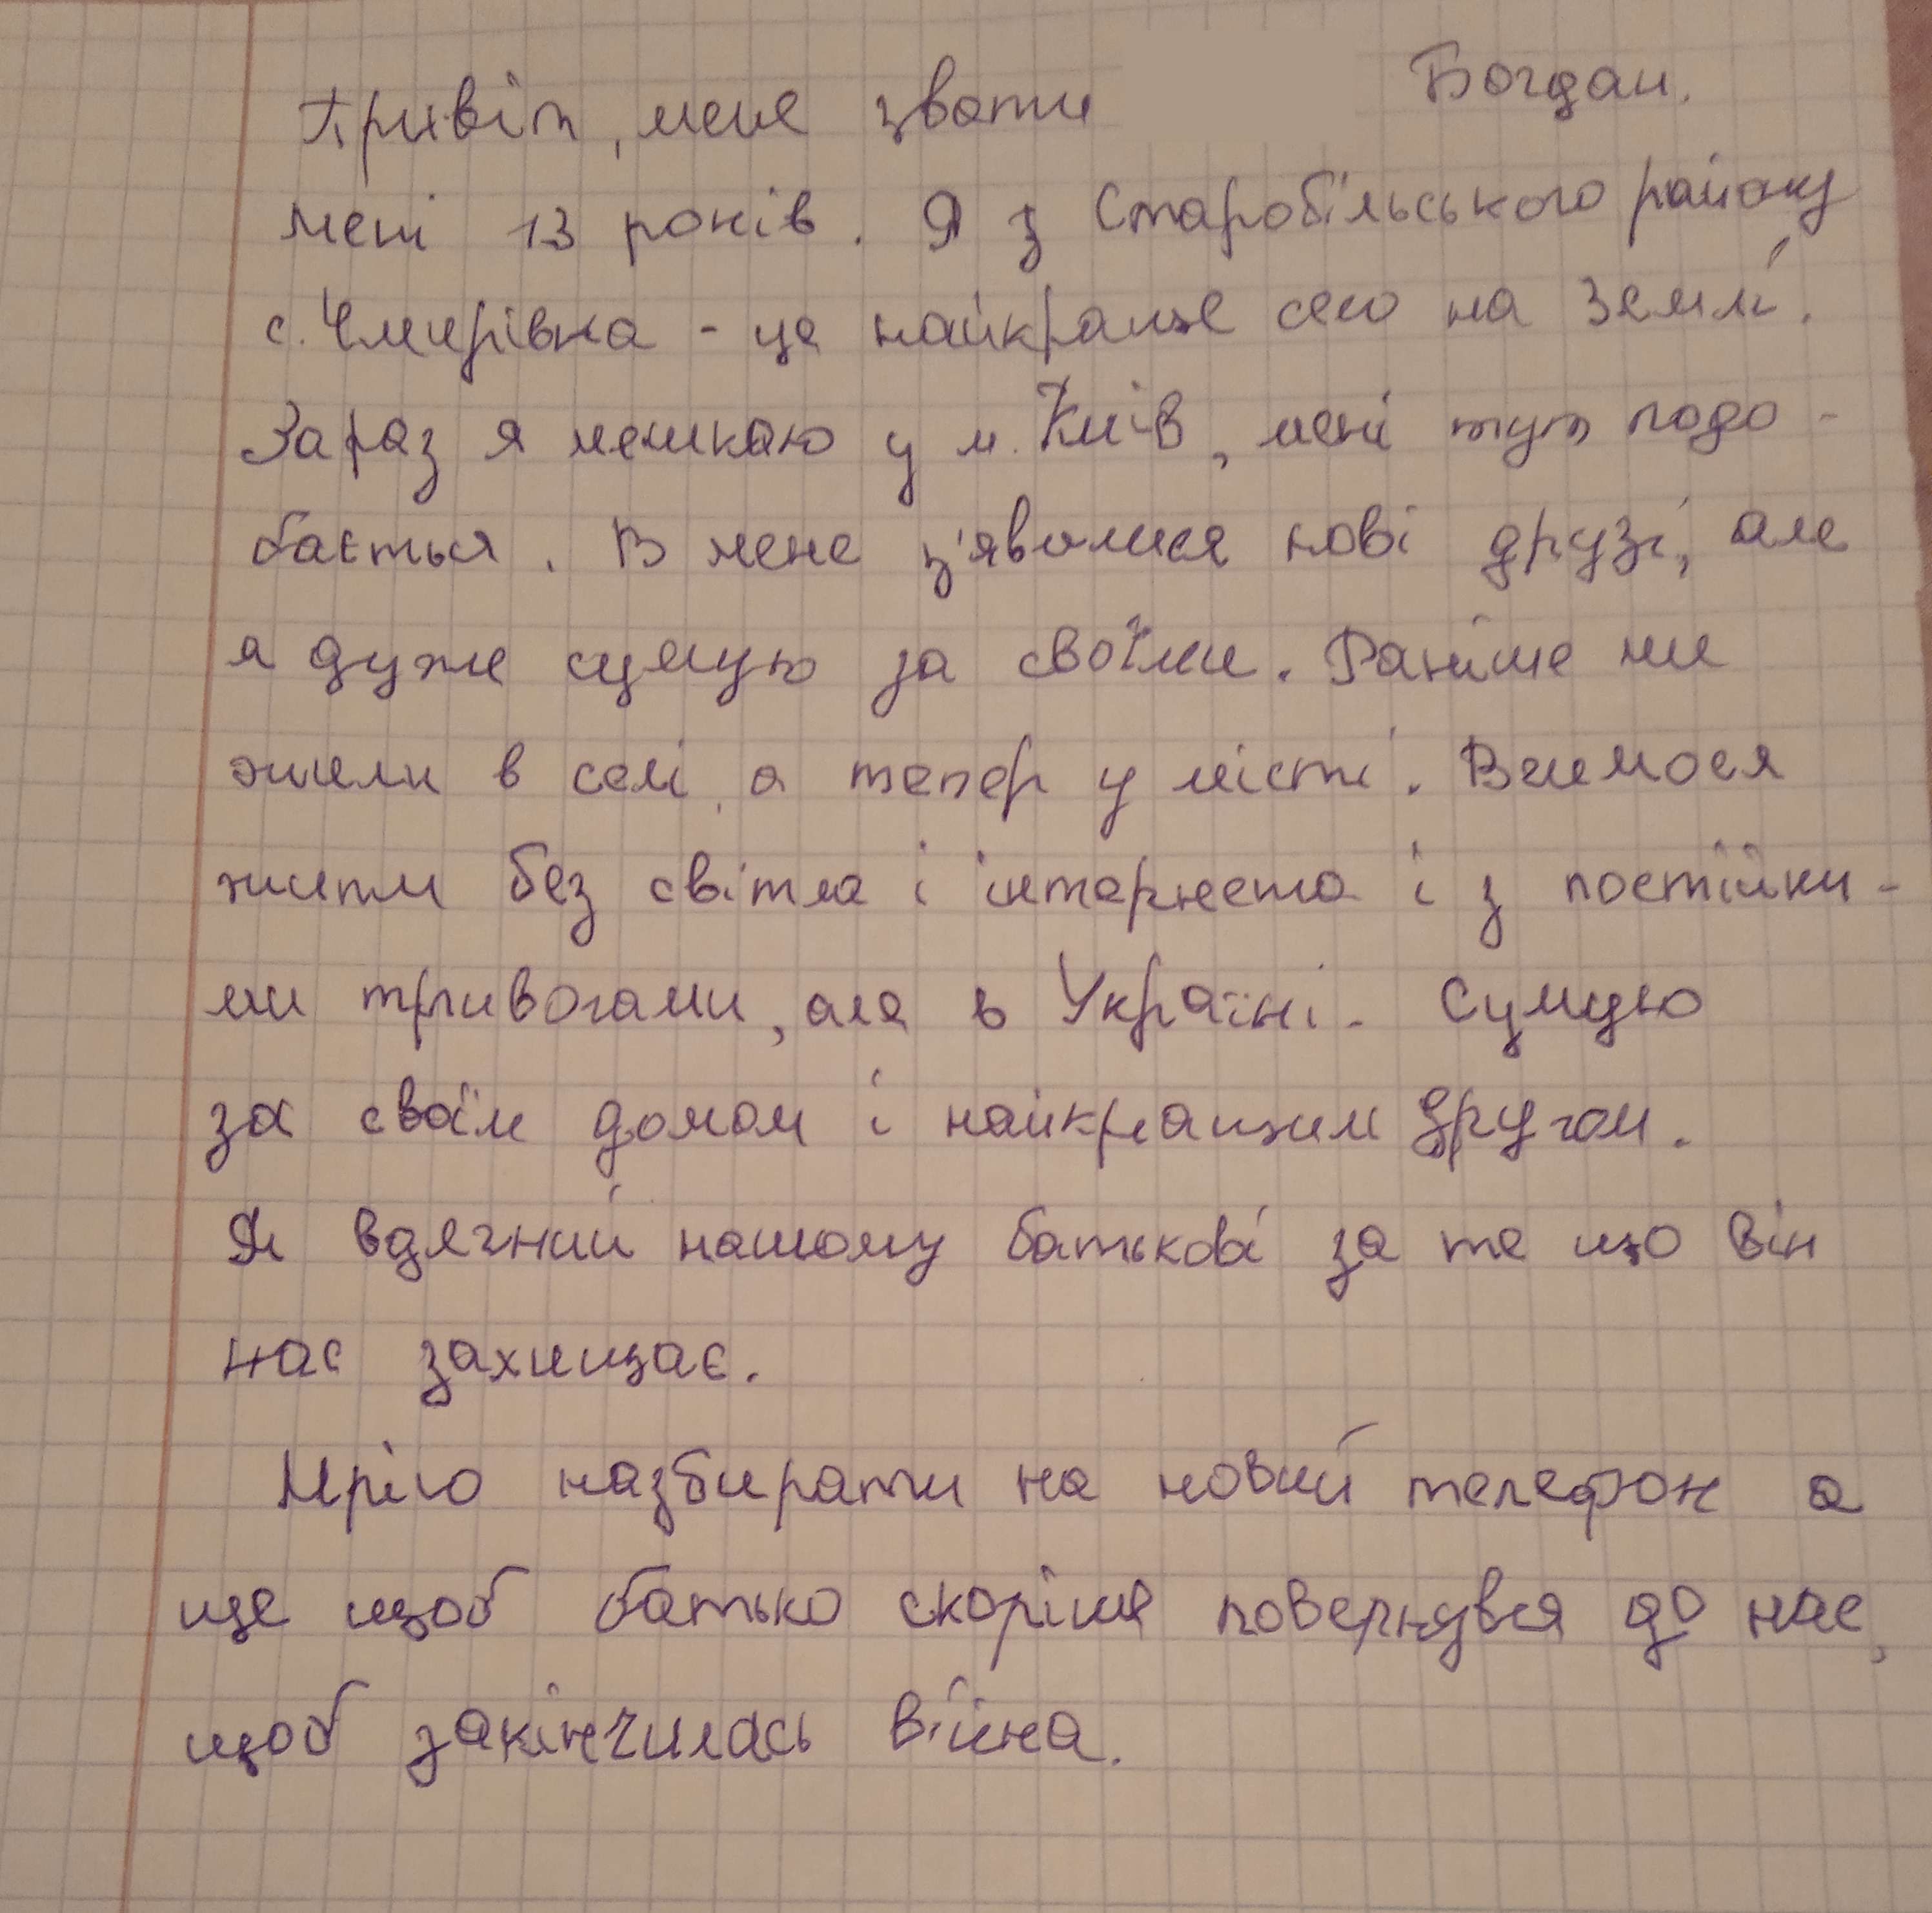 Привіт, мене звати Богдан.
мені 13 років. Я з Старобільського району
с. Чмирівка - це найкраще село на Землі.
Зараз я мешкаю у м. Київ, мені тут подо-
бається. В мене з'явилися нові друзі, але
я дуже сумую за своїми. Раніше ми
жили в селі, а тепер у місті. Вчимося
жити без світла і інтернета і з постійни-
ми тривогами, але в Україні. Сумую
за своїм домом і найкращим другом.
Я вдячний нашому батькові за те що він
нас захищає.
Мрію назбирати на новий телефон а
ще щоб батько скоріше повернувся до нас,
щоб закінчилась війна.